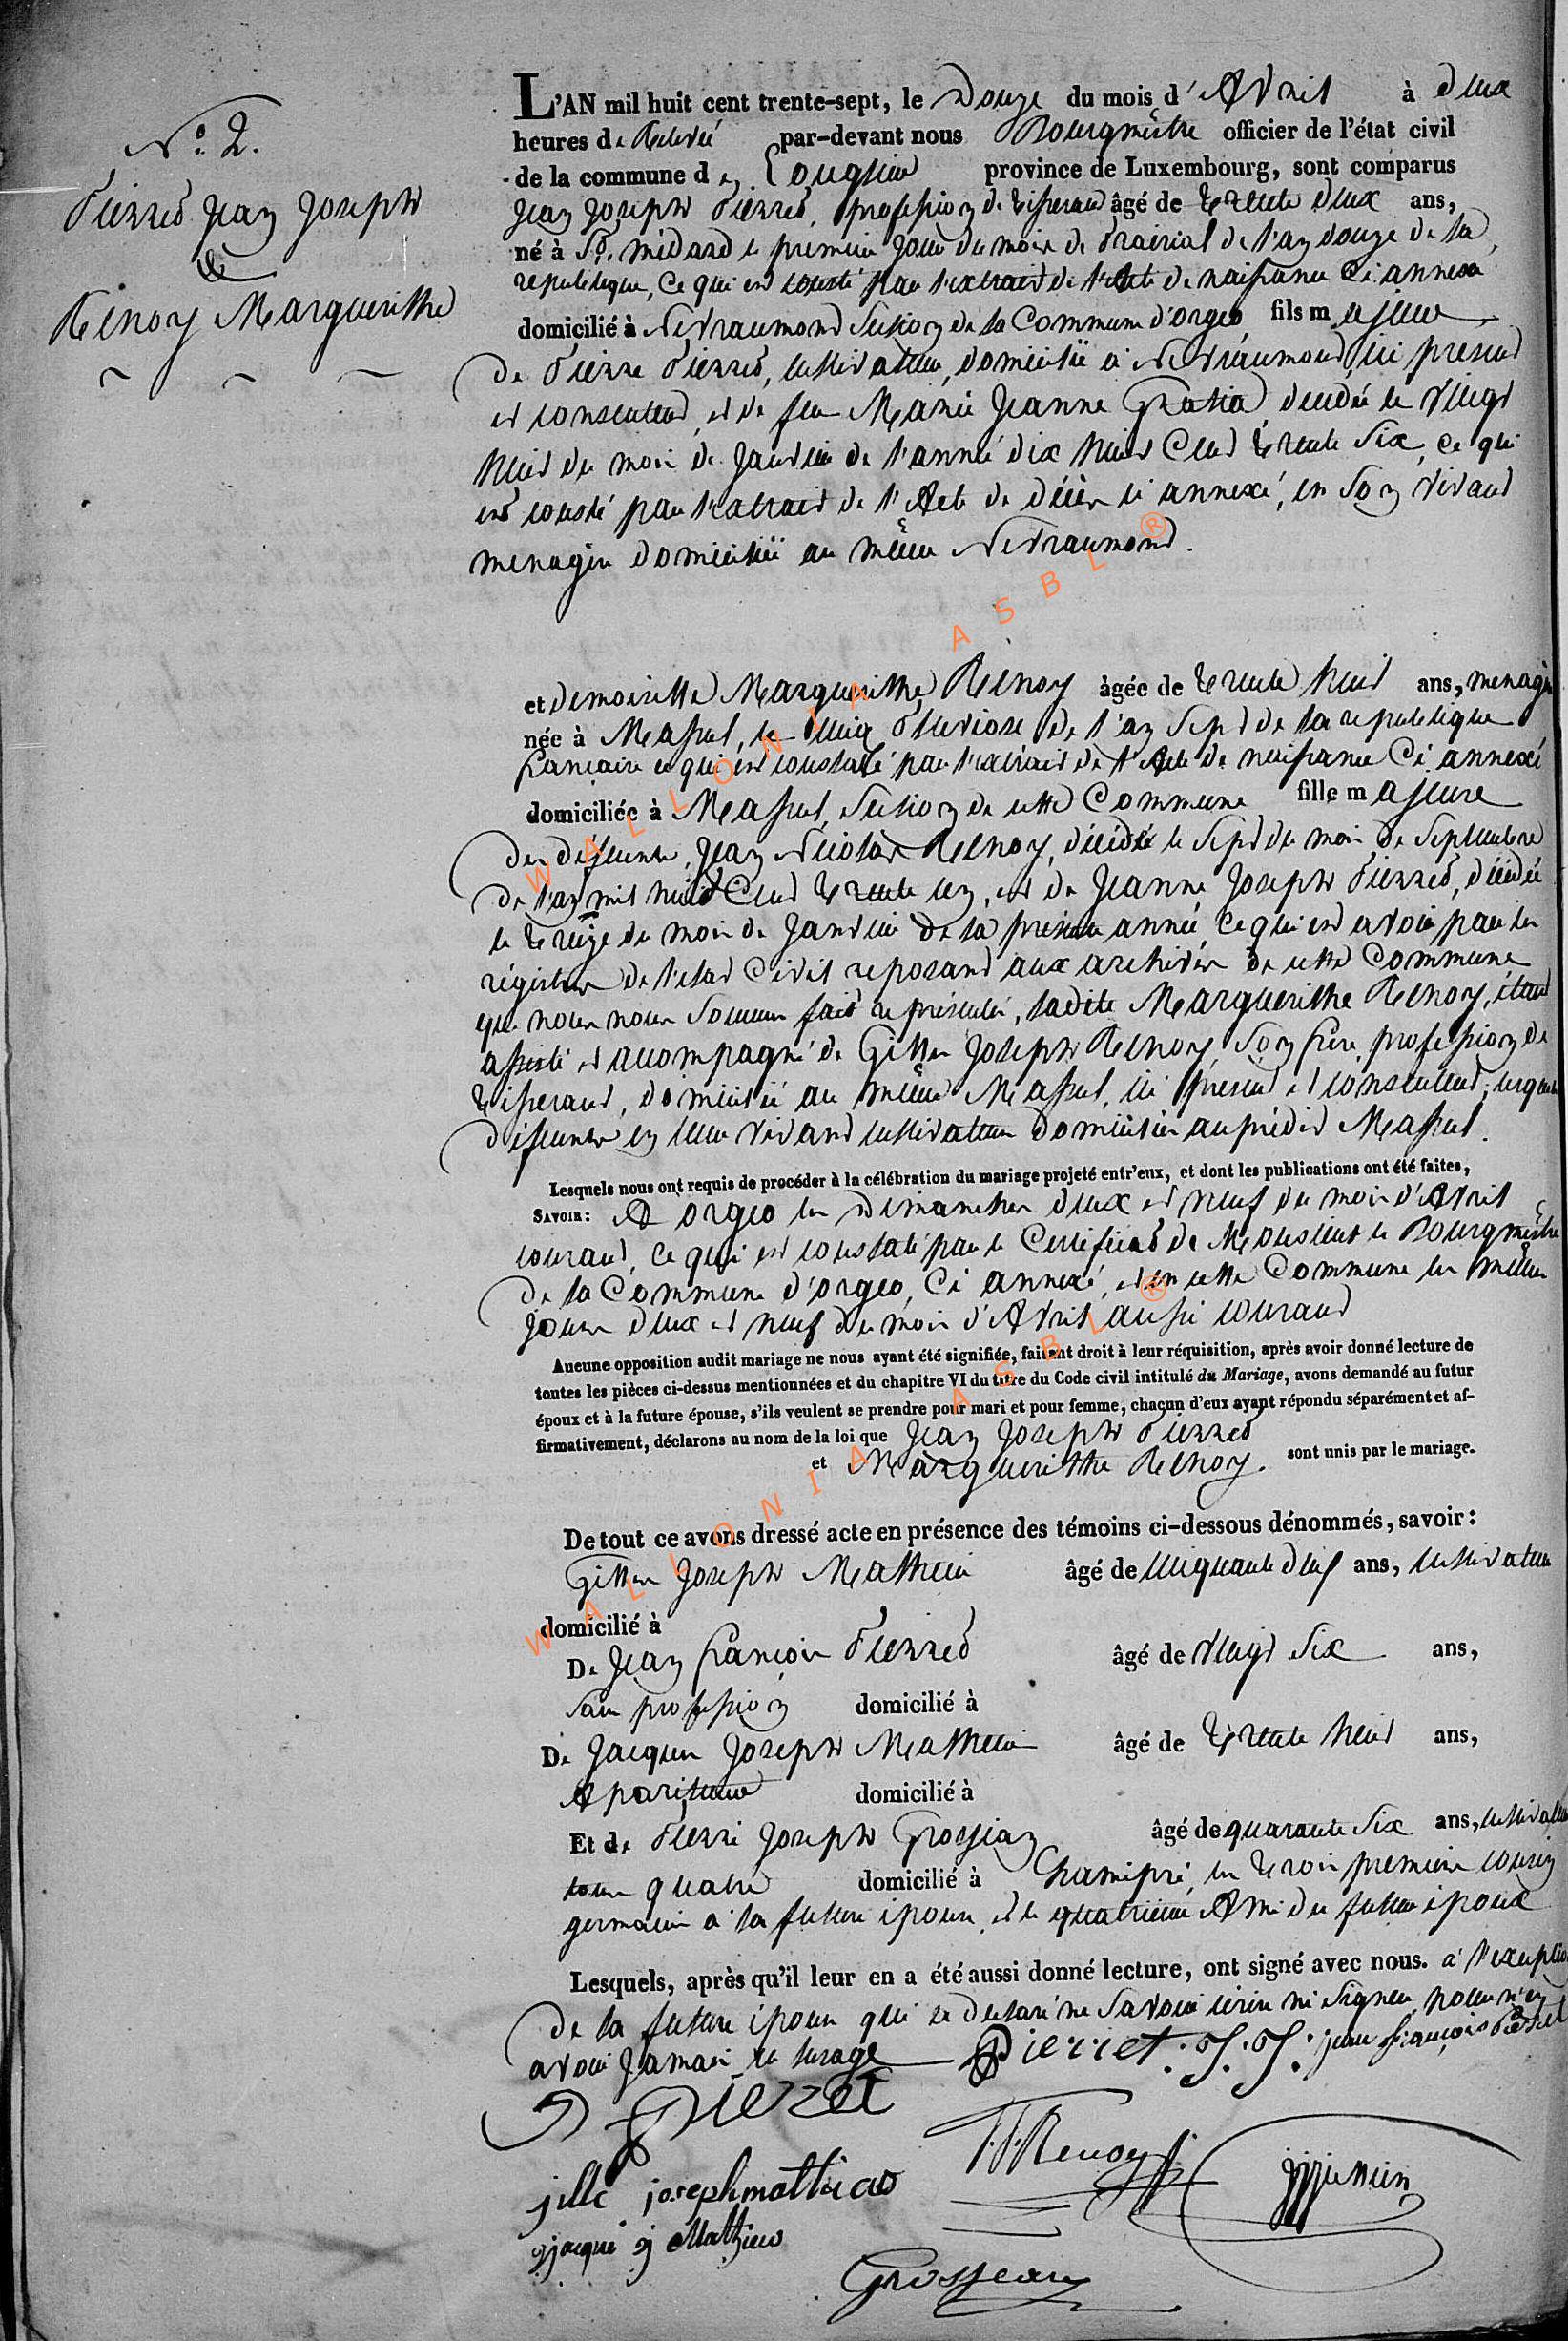 N.o 2.
Pierret Jean Joseph
&
Renoy Marguerithe
L'AN mil huit cent trente-sept, le Douze du mois d'Avril à deux
heures de Relevée par-devant nous Bourgmestre officier de l'état civil
de la commune de Louglier province de Luxembourg, sont comparus
Jean Joseph Pierret, profession de tisserand âgé de trente deux ans,
né à St. médard le premier jour du mois de Prairial de l'an douze de la
republique, Ce qui est constté par l'extrait de l'Acte de naissance Ci annexé
domicilié à Nevraumont Section de la Commune d'orgeo fils majeur
De Pierre Pierret, cultivateur, domicilié à Nevraumont, ici present
et consentent, et de feu Marie Jeanne Gratia décédée le vingt
huit du mois de Janvier de l'année dix huit Cent trente Six, ce qui
est consté par l'extrait de l'Acte de décès ci annexé, en Son vivant
menagère domiciliée au même Nevraumont.
et demoiselle Marguerithe Renoy àgée de trente huit ans, menagère
née à Massul, le cinq Pluviose de l'an Sept de la republique
francaise ce qui est constaté par l'extrait de l'Acte de naissance Ci annexé
domiciliée à Massul, Section de cette Commune fille majeure
Des défunts, Jean Nicolas Renoy, décédé le Sept du mois de Septembre
De l'an mil huit Cent trente un, et de Jeanne Joseph Pierret, décédée
le treize du mois de Janvier de la présente année ce qui est avoir par les
régistres de l'etat Civil reposant aux archives de cette Commune
que nous nous Sommes fait représenter, ladite Marguerithe Renoy, étant
assisté et accompagné de Gilles Joseph Renoy, Son frère, profession de
tisserand, domicilié au même Massul, ici present et consentent, lesquels
défunts en leur vivant cultivateurs domiciliés au prédit Massul.
Lesquels nous ont requis de procéder à la célébration du mariage projeté entr'eux, et dont les publications ont été faites,
SAVOIR: A orgeo les Dimanches deux et neuf du mois d'Avril
courant, ce qui est constaté par le Certificat de Monsieur le Bourgmestre
De la Commune d'orgeo, Ci annexé, et en cette Commune les mêmes
jours deux et neuf du mois d'Avril aussi courant
Aucune opposition audit mariage ne nous ayant été signifiée, faisant droit à leur réquisition, après avoir donné lecture de
toutes les pièces ci-dessus mentionnées et du chapitre VI du titre du Code civil intitulé du Mariage, avons demandé au futur
époux et à la future épouse, s'ils veulent se prendre pour mari et pour femme, chacun d'eux ayant répondu séparément et af-
firmativement, déclarons au nom de la loi que Jean Joseph Pierret
et Marguerithe Renoy. sont unis par le mariage.
De tout ce avons dressé acte en présence des témoins ci-dessous dénommés, savoir:
Gilles Joseph Mathieu âgé de cinquante deux ans, cultivateur
domicilié à
De Jean francois Pierret âgé de vingt Six ans,
Sans profession domicilié à
De Jacques Joseph Mathieu âgé de trente huit ans,
Apariteur domicilié à
Et de Pierre Joseph Grosjean âgé de quarante Six ans, cultivateur
tous quatre domicilié à Chamipré, les trois premiers cousin
germain à la future épouse, et le quatrième Ami du futur époux
Lesquels, après qu'il leur en a été aussi donné lecture, ont signé avec nous. à l'exception
De la future épouse qui a declaré ne Savoir écrire ni Signer, pour n'en
avoir Jamais eu lusage Pierret. J. J. jean françois Pierret
P Pierret
J.J Renoy
jille joseph mathieu
jacque j Mathieu
Grosjean
WALLONIA ASBL ®
WALLONIA ASBL ®